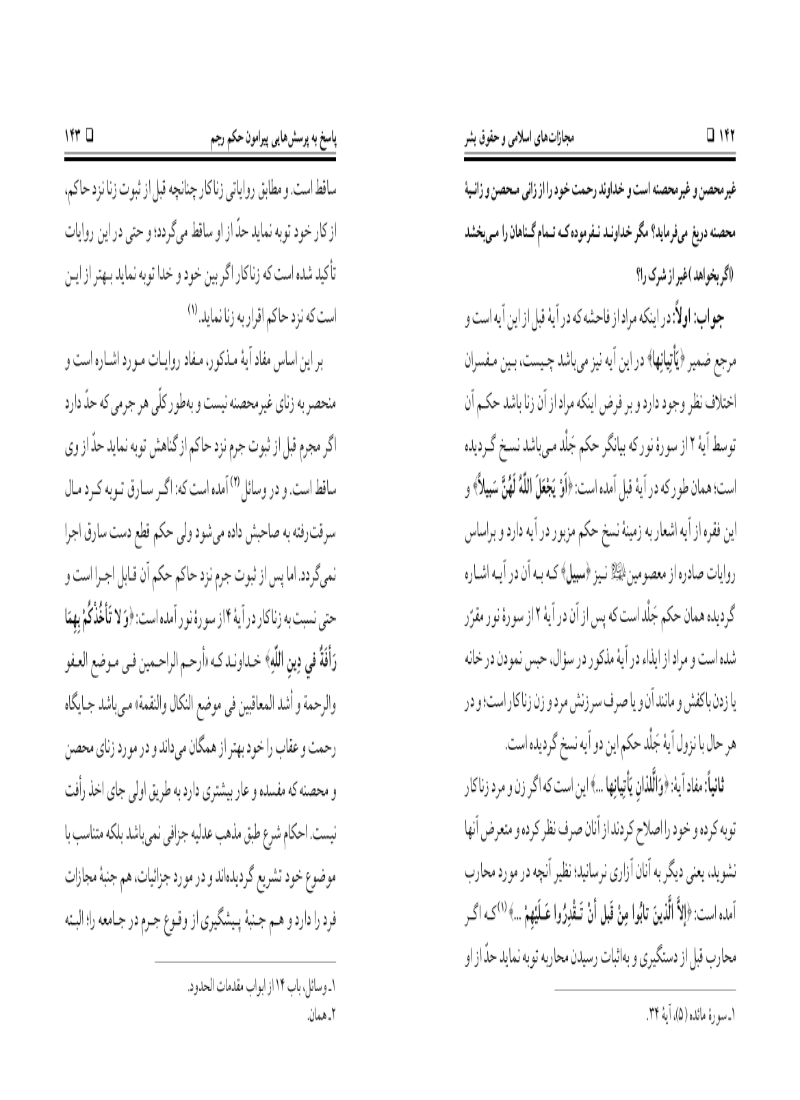 ۱۴۲ ❑ مجازات‌های اسلامی و حقوق بشر
غیر محصن و غیر محصنه است و خداوند رحمت خود را از زانی محصن و زانیهٔ
محصنه دریغ می‌فرماید؟ مگر خداوند نفرموده که تمام گناهان را می‌بخشد
(اگر بخواهد) غیر از شرک را؟
جواب: اولاً: در اینکه مراد از فاحشه که در آیهٔ قبل از این آیه است و
مرجع ضمیر ﴿یَأْتِیانِها﴾ در این آیه نیز می‌باشد چیست، بین مفسران
اختلاف نظر وجود دارد و بر فرض اینکه مراد از آن زنا باشد حکم آن
توسط آیهٔ ۲ از سورهٔ نور که بیانگر حکم جَلْد می‌باشد نسخ گردیده
است؛ همان طور که در آیهٔ قبل آمده است: ﴿أَوْ یَجْعَلَ اللّهُ لَهُنَّ سَبیلاً﴾ و
این فقره از آیه اشعار به زمینهٔ نسخ حکم مزبور در آیه دارد و براساس
روایات صادره از معصومین﷨ نیز ﴿سبیل﴾ که به آن در آیه اشاره
گردیده همان حکم جَلْد است که پس از آن در آیهٔ ۲ از سورهٔ نور مقرّر
شده است و مراد از ایذاء در آیهٔ مذکور در سؤال، حبس نمودن در خانه
یا زدن باکفش و مانند آن و یا صرف سرزنش مرد و زن زناکار است؛ و در
هر حال با نزول آیهٔ جَلْد حکم این دو آیه نسخ گردیده است.
ثانیاً: مفاد آیهٔ: ﴿وَالَّلذانِ یَأْتِیانِها ...﴾ این است که اگر زن و مرد زناکار
توبه کرده و خود را اصلاح کردند از آنان صرف نظر کرده و متعرض آنها
نشوید، یعنی دیگر به آنان آزاری نرسانید؛ نظیر آنچه در مورد محارب
آمده است: ﴿إلاَّ الَّذینَ تابُوا مِنْ قَبلِ أنْ تَقْدِرُوا عَلَیْهِمْ ...﴾(۱) که اگر
محارب قبل از دستگیری و به‌اثبات رسیدن محاربه توبه نماید حدّ از او
۱ـ سورهٔ مائده (۵)، آیهٔ ۳۴.
پاسخ به پرسش‌هایی پیرامون حکم رجم ❑ ۱۴۳
ساقط است. و مطابق روایاتی زناکار چنانچه قبل از ثبوت زنا نزد حاکم،
از کار خود توبه نماید حدّ از او ساقط می‌گردد؛ و حتی در این روایات
تأکید شده است که زناکار اگر بین خود و خدا توبه نماید بهتر از این
است که نزد حاکم اقرار به زنا نماید.(۱)
بر این اساس مفاد آیهٔ مذکور، مفاد روایات مورد اشاره است و
منحصر به زنای غیر محصنه نیست و به‌طور کلّی هر جرمی که حدّ دارد
اگر مجرم قبل از ثبوت جرم نزد حاکم از گناهش توبه نماید حدّ از وی
ساقط است. و در وسائل(۲) آمده است که: اگر سارق توبه کرد مال
سرقت‌رفته به صاحبش داده می‌شود ولی حکم قطع دست سارق اجرا
نمی‌گردد. اما پس از ثبوت جرم نزد حاکم حکم آن قابل اجرا است و
حتی نسبت به زناکار در آیهٔ ۲ از سورهٔ نور آمده است: ﴿وَ لا تَأخُذْکُمْ بِهِمَا
رَأفَةٌ في دِینِ اللّهِ﴾ خداوند که «أرحم الراحمین فی موضع العفو
والرحمة و أشد المعاقبین فی موضع النکال والنقمة» می‌باشد جایگاه
رحمت و عقاب را خود بهتر از همگان می‌داند و در مورد زنای محصن
و محصنه که مفسده و عار بیشتری دارد به طریق اولی جای اخذ رأفت
نیست. احکام شرع طبق مذهب عدلیه جزافی نمی‌باشد بلکه متناسب با
موضوع خود تشریع گردیده‌اند و در مورد جزائیات، هم جنبهٔ مجازات
فرد را دارد و هم جنبهٔ پیشگیری از وقوع جرم در جامعه را؛ البته
۱ـ وسائل، باب ۱۴ از ابواب مقدمات الحدود.
۲ـ همان.